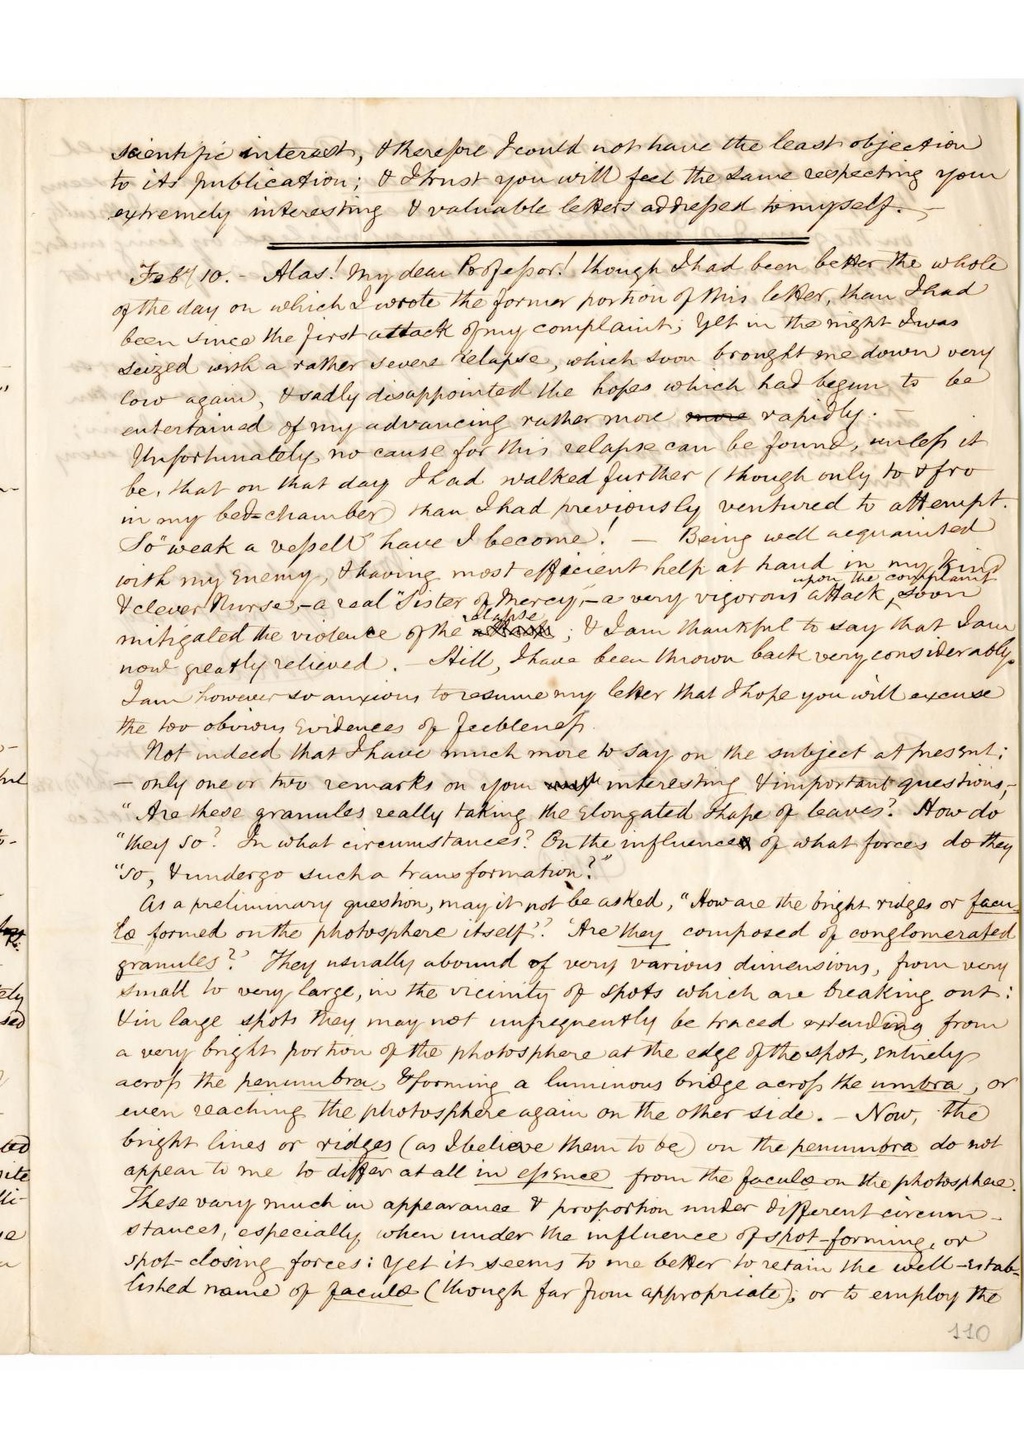 scientific interest, & therefore I could not have the least objection
to its publication; & I trust you will feel the same respecting your
extremely interesting & valuable letters addressed to myself. —
Feby 10. — Alas! My dear Professor! though I had been better the whole
of the day on which I wrote the former portion of this letter, than I had
been since the first attack of my complaint; yet in the night I was
seized with a rather severe relapse, which soon brought me down very
low again, & sadly disappointed the hopes which had begun to be
entertained of my advancing rather more more rapidly. —
Unfortunately, no cause for this relapse can be found, unless it
be, that on that day I had walked further (though only to & fro
in my bed=chamber) than I had previously ventured to attempt.
So "weak a vessell" have I become! — Being well acquainted
with my Enemy, & having most efficient help at hand in my kind
upon the complaint
& clever Nurse, – a real "Sister of Mercy", – a very vigorous attack, soon
relapse
mitigated the violence of the attack; & I am thankful to say that I am
now greatly relieved. — Still, I have been thrown back very considerably.
I am however so anxious to resume my letter that I hope you will excuse
the too obvious Evidences of feebleness.
Not indeed that I have much more to say on the subject at present:
— only one or two remarks on your interesting & important questions, –
"Are these granules really taking the Elongated shape of leaves? How do
"they so? In what circumstances? On the influence of what forces do they
"so, & undergo such a transformation?"
As a preliminary question, may it not be asked, "How are the bright ridges or facu-
læ formed on the photosphere itself"? 'Are they composed of conglomerated
granules?' They usually abound of very various dimensions, from very
small to very large, in the vicinity of spots which are breaking out:
& in large spots they may not unfrequently be traced extending from
a very bright portion of the photosphere at the edge of the spot, entirely
across the penumbra, & forming a luminous bridge across the umbra, or
even reaching the photosphere again on the other side. — Now, the
bright lines or ridges (as I believe them to be) on the penumbra do not
appear to me to differ at all in essence from the faculæ on the photosphere.
These vary much in appearance & proportion under different circum-
stances, especially when under the influence of spot-forming, or
spot-closing forces: yet it seems to me better to retain the well-estab-
lished name of faculæ (though far from appropriate); or to employ the
110